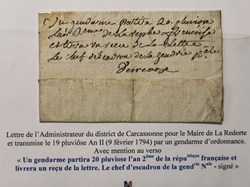 Un gendarme partira 20 pluviose
Lan 2eme de la repube francaise
et livrera un recu de la Lettre
Le chef d'escadron de la gendrie nale
Lettre de l'Administrateur du district de Carcassonne pour le Maire de La Redorte
et transmise le 19 pluviôse An II (9 février 1794) par un gendarme d'ordonnance.
Avec mention au verso
« Un gendarme partira 20 pluviose l'an 2ème de la république française et
livrera un reçu de la lettre. Le chef d'escadron de la gendie Nale - signé »